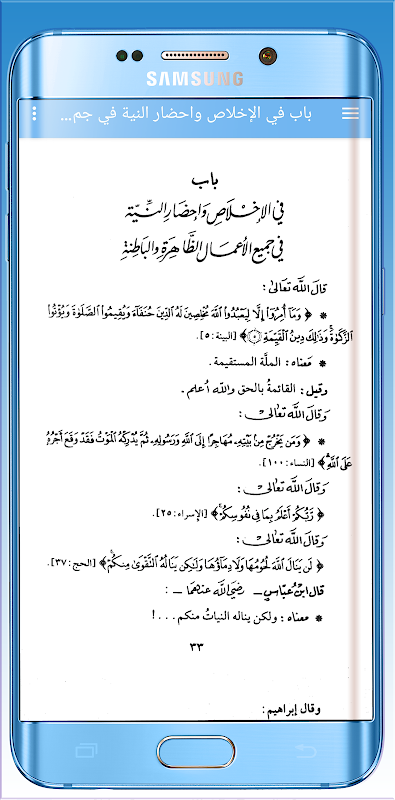 SAMSUNG
باب في الإخلاص واحضار النية في جم...
باب
في الإخْلَاصِ وَإحضَارِ النِّيَّةِ
في جَميعِ الأعمَالِ الظَّاهِرَةِ وَالبَاطِنَةِ
قالَ اللَّه تَعَالىٰ :
* ﴿ وَمَآ أُمِرُوٓا۟ إِلَّا لِيَعْبُدُوا۟ ٱللَّهَ مُخْلِصِينَ لَهُ ٱلدِّينَ حُنَفَآءَ وَيُقِيمُوا۟ ٱلصَّلَوٰةَ وَيُؤْتُوا۟
ٱلزَّكَوٰةَ ۚ وَذَٰلِكَ دِينُ ٱلْقَيِّمَةِ ۝٥ ﴾ [البينة : ٥].
* مَعناه : الملَّة المستقيمة .
وقيل : القائمةُ بالحق واللَّه أعلم .
وَقالَ اللَّه تعالىٰ :
* ﴿ وَمَن يَخْرُجْ مِنۢ بَيْتِهِۦ مُهَاجِرًا إِلَى ٱللَّهِ وَرَسُولِهِۦ ثُمَّ يُدْرِكْهُ ٱلْمَوْتُ فَقَدْ وَقَعَ أَجْرُهُۥ
عَلَى ٱللَّهِ ﴾ [النساء : ١٠٠].
وَقالَ اللَّه تعالىٰ :
﴿ رَّبُّكُمْ أَعْلَمُ بِمَا فِى نُفُوسِكُمْ ﴾ [الإسراء : ٢٥].
وَقالَ اللَّه تعالىٰ :
﴿ لَن يَنَالَ ٱللَّهَ لُحُومُهَا وَلَا دِمَآؤُهَا وَلَٰكِن يَنَالُهُ ٱلتَّقْوَىٰ مِنكُمْ ﴾ [الحج : ٣٧].
قال ابنُ عبَّاسٍ ــ رَضيَ اللَّه عنهمَا ــ :
* معناه : ولكن يناله النياتُ منكم . . . !
٣٣
وقال إبراهيم :